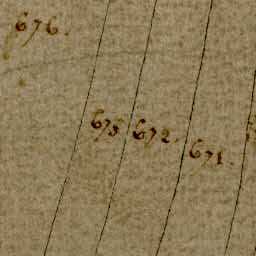 676.
673 672.
671.